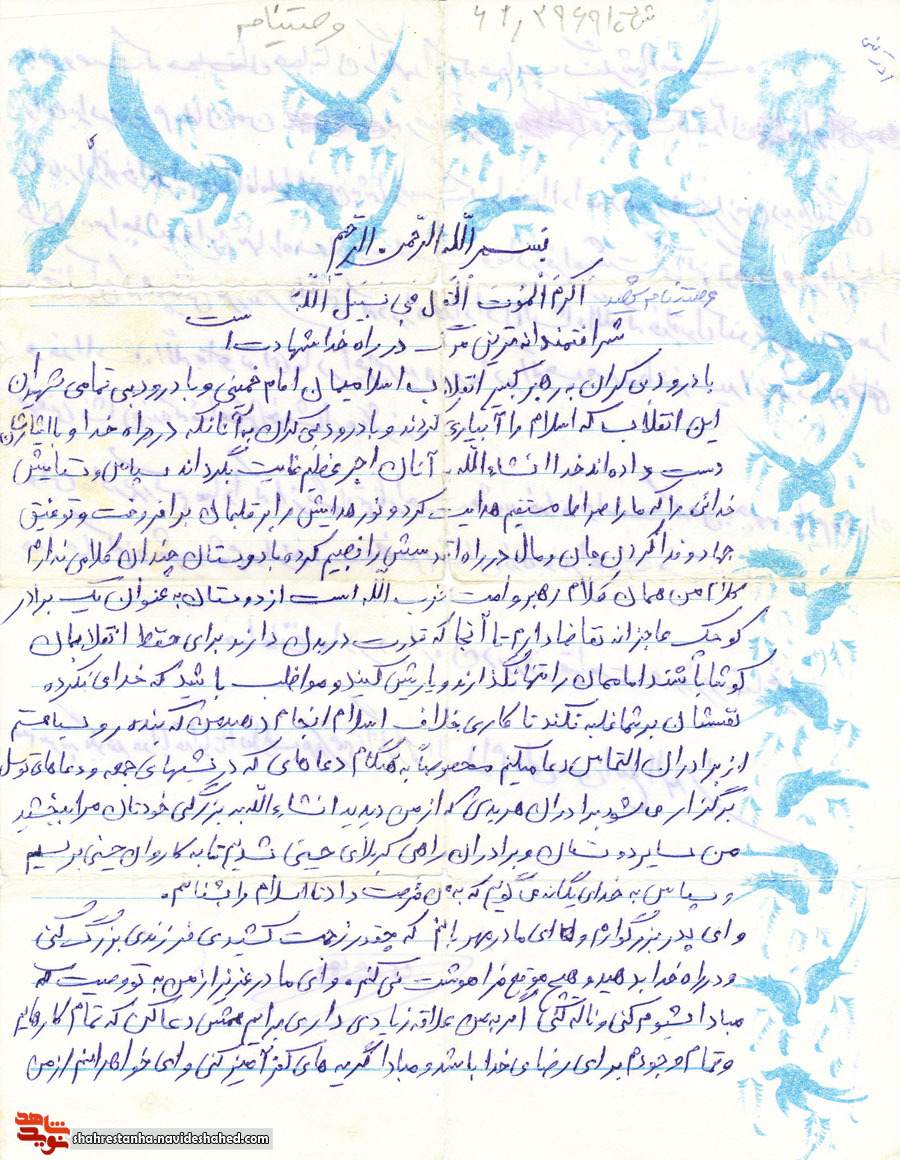 وصیتنامه
بسم اللّه الرّحمن الرّحیم
وصیتنامه شهید
اَکرَمُ الْمَوْتِ اَلْقَتلُ فی سَبیلِ اَللّه
شرافتمندانه ترین مرگ در راه خدا شهادت است
با درود بی کران به رهبر کبیر انقلاب اسلامیمان امام خمینی و با درود بی تمامی شهیدان
این انقلاب که اسلام را آبیاری کردند و با درود بی کران به آنانکه در راه خدا و با ایثارگریشان
دست داده اند خدا انشاءاللّه به آنان اجر عظیم عنایت بگرداند سپاس و ستایش
خدائی را که ما را صراط مستقیم هدایت کرد و نور هدایتش را بر قلبمان برافروخت و توفیق
جهاد و فدا کردن جان و مال در راه اقدسش را نصیبم کرده با دوستان چندان کلامی ندارم
کلام من همان کلام رهبر و امت حزب اللّه است از دوستان به عنوان یک برادر
کوچک عاجزانه تقاضا دارم تا آنجا که قدرت در بدن دارند برای حفظ انقلابمان
کوشا باشند اماممان را تنها نگذارند و یاریش کنند و مواظب باشید که خدای نکرده
نفستان بر شما غلبه نکند تا کاری خلاف اسلام انجام دهید من که بنده رو سیاه هستم
از برادران التماس دعا میکنم مخصوصاً به هنگام دعاهای که در شبهای جمعه و دعاهای توسل
برگزار می شود برادران هر بدی که از من دیدید انشاءاللّه به بزرگی خودتان مرا ببخشید
من سایر دوستان و برادران راهی کربلای حسینی شدیم تا به کاروان حسینی برسیم
و سپاس به خدای یگانه می گویم که به من فرصت داد تا اسلام را بشناسم.
و ای پدر بزرگوارم و ای مادر مهربانم که چقدر زحمت کشیدی فرزندی بزرگ کنی
و در راه خدا بدهید و هیچ موقع فراموشت نمی کنم. و ای مادر عزیز از من به تو وصیت که
مبادا شیوم کنی و ناله کنی اگر به من علاقه زیادی داری برایم همش دعا کن که تمام کارهایم
و تمام وجودم برای رضای خدا باشد و مبادا گریه های کفر آمیز کنی و ای خواهرانم از من
نوید شاهد
shahrestanha.navideshahed.com